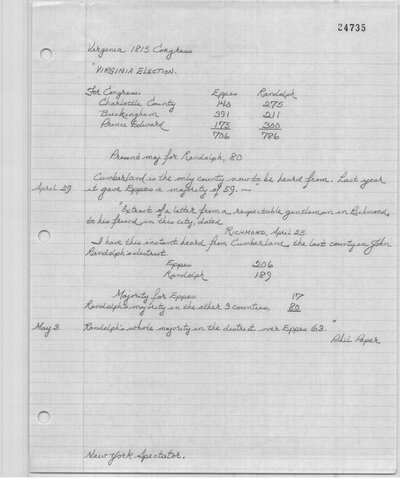 24735
Virginia 1815 Congress
"VIRGINIA ELECTION.
For Congress. Eppes Randolph
Charlotte County 140 275
Buckingham 391 211
Prince Edward 175 300
706 786
Present maj for Randolph, 80
Cumberland is the only county now to be heard from. Last year
April 29 it gave Eppes a majority of 59. —"
"Extract of a letter from a respectable gentleman in Richmond,
to his friend in this city, dated
RICHMOND, April 25
I have this instant heard from Cumberland, the last county in John
Randolph's district.
Eppes 206
Randolph 189
Majority for Eppes 17
Randolph's majority in the other 3 counties, 80
May 3. Randolph's whole majority in the district over Eppes 63."
Phil Paper
New York Spectator.